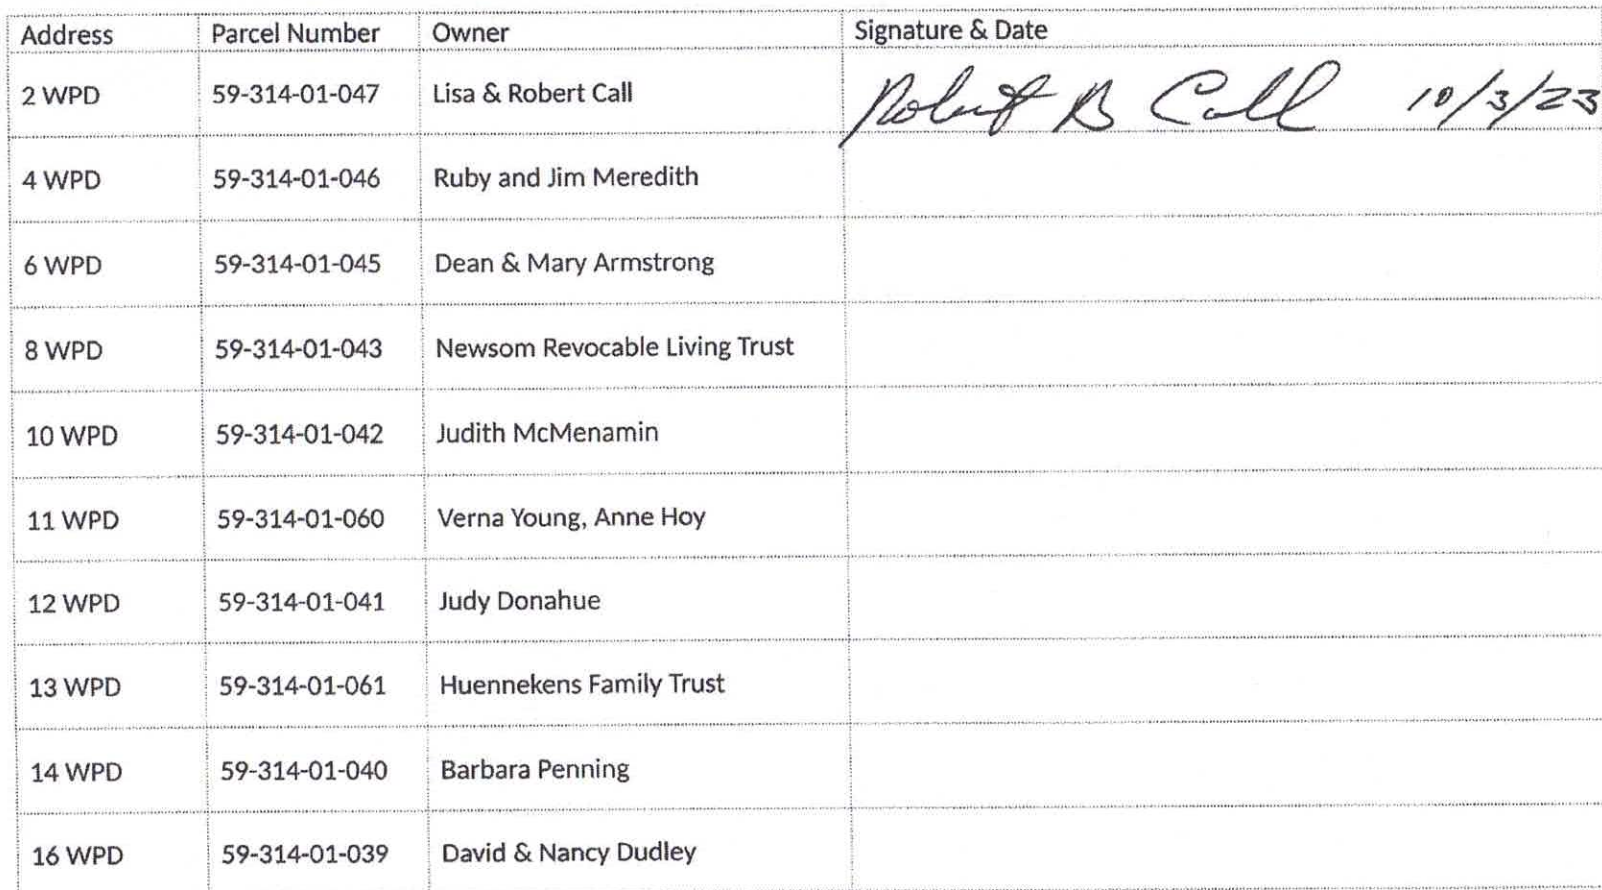 Address Parcel Number Owner Signature & Date
2 WPD 59-314-01-047 Lisa & Robert Call Robert B Call 10/3/23
4 WPD 59-314-01-046 Ruby and Jim Meredith
6 WPD 59-314-01-045 Dean & Mary Armstrong
8 WPD 59-314-01-043 Newsom Revocable Living Trust
10 WPD 59-314-01-042 Judith McMenamin
11 WPD 59-314-01-060 Verna Young, Anne Hoy
12 WPD 59-314-01-041 Judy Donahue
13 WPD 59-314-01-061 Huennekens Family Trust
14 WPD 59-314-01-040 Barbara Penning
16 WPD 59-314-01-039 David & Nancy Dudley